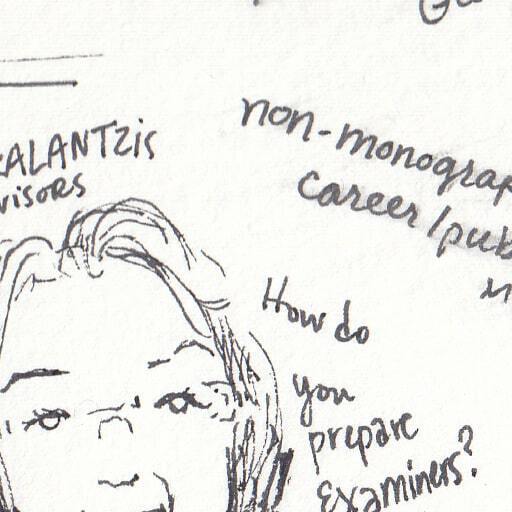 KALANTZIS
VISORS
non-monograp
career/pub
How do
you
prepare
examiners?